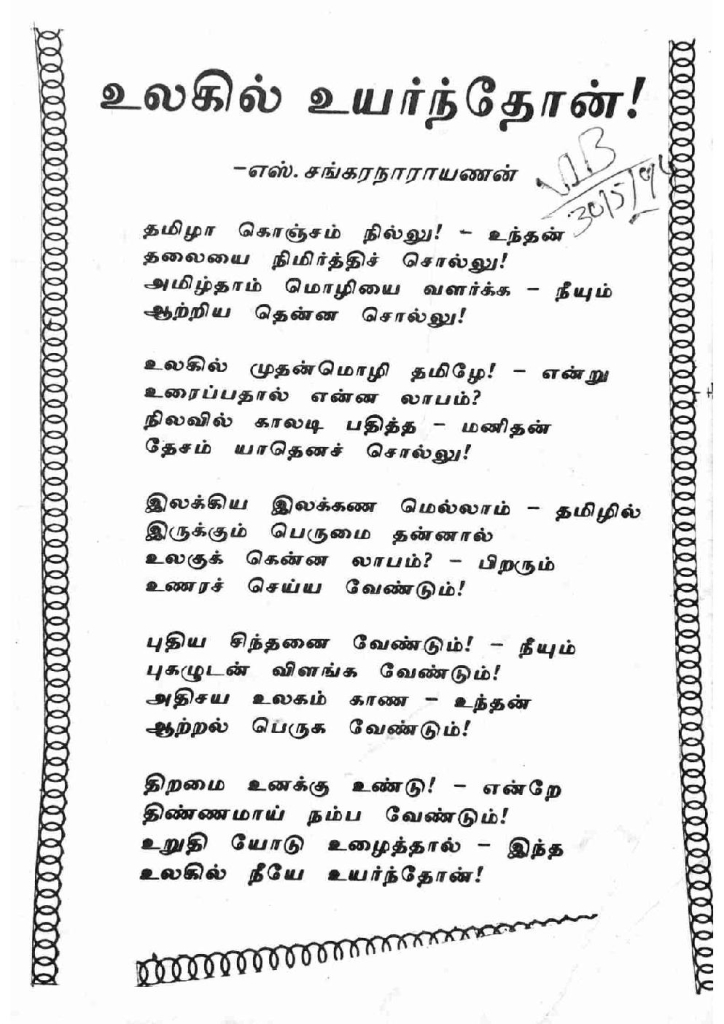 உலகில் உயர்ந்தோன்!
-எஸ். சங்கரநாராயணன்
30/5/94
தமிழா கொஞ்சம் நில்லு! - உந்தன்
தலையை நிமிர்த்திச் சொல்லு!
அமிழ்தாம் மொழியை வளர்க்க - நீயும்
ஆற்றிய தென்ன சொல்லு!
உலகில் முதன்மொழி தமிழே! - என்று
உரைப்பதால் என்ன லாபம்?
நிலவில் காலடி பதித்த - மனிதன்
தேசம் யாதெனச் சொல்லு!
இலக்கிய இலக்கண மெல்லாம் - தமிழில்
இருக்கும் பெருமை தன்னால்
உலகுக் கென்ன லாபம்? - பிறரும்
உணரச் செய்ய வேண்டும்!
புதிய சிந்தனை வேண்டும்! - நீயும்
புகழுடன் விளங்க வேண்டும்!
அதிசய உலகம் காண - உந்தன்
ஆற்றல் பெருக வேண்டும்!
திறமை உனக்கு உண்டு! - என்றே
திண்ணமாய் நம்ப வேண்டும்!
உறுதி யோடு உழைத்தால் - இந்த
உலகில் நீயே உயர்ந்தோன்!